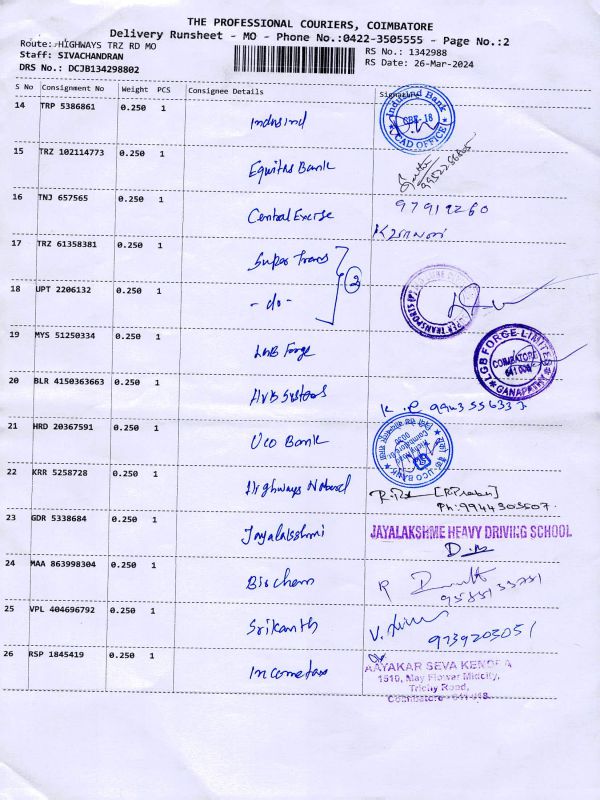 THE PROFESSIONAL COURIERS, COIMBATORE
Delivery Runsheet - MO - Phone No.:0422-3505555 - Page No.:2
Route: HIGHWAYS TRZ RD MO
RS No.: 1342988
Staff: SIVACHANDRAN
RS Date: 26-Mar-2024
DRS No.: DCJB134298802
S No Consignment No Weight PCS Consignee Details Signature
14 TRP 5386861 0.250 1 Indusind
IndusInd Bank
CAD OFFICE
15 TRZ 102114773 0.250 1 Equitas Bank
16 TNJ 657565 0.250 1 Central Excise
17 TRZ 61358381 0.250 1 Super Trans
2
18 UPT 2206132 0.250 1 - do -
19 MYS 51250334 0.250 1 LGB Forge
LGB FORGE LIMITED
COIMBATORE
641 006
GANAPATHY
20 BLR 4150363663 0.250 1 AVB Systems
21 HRD 20367591 0.250 1 Uco Bank
UCO BANK
22 KRR 5258728 0.250 1 Highways
Ph: 9944303507
23 GDR 5338684 0.250 1 Jayalakshmi
JAYALAKSHME HEAVY DRIVING SCHOOL
24 MAA 863998304 0.250 1 Biochem
25 VPL 404696792 0.250 1 Srikanth
9739203051
26 RSP 1845419 0.250 1 Incometax
AAYAKAR SEVA KENDRA
1510, May Flower Midcity,
Trichy Road,
Coimbatore - 641 018.